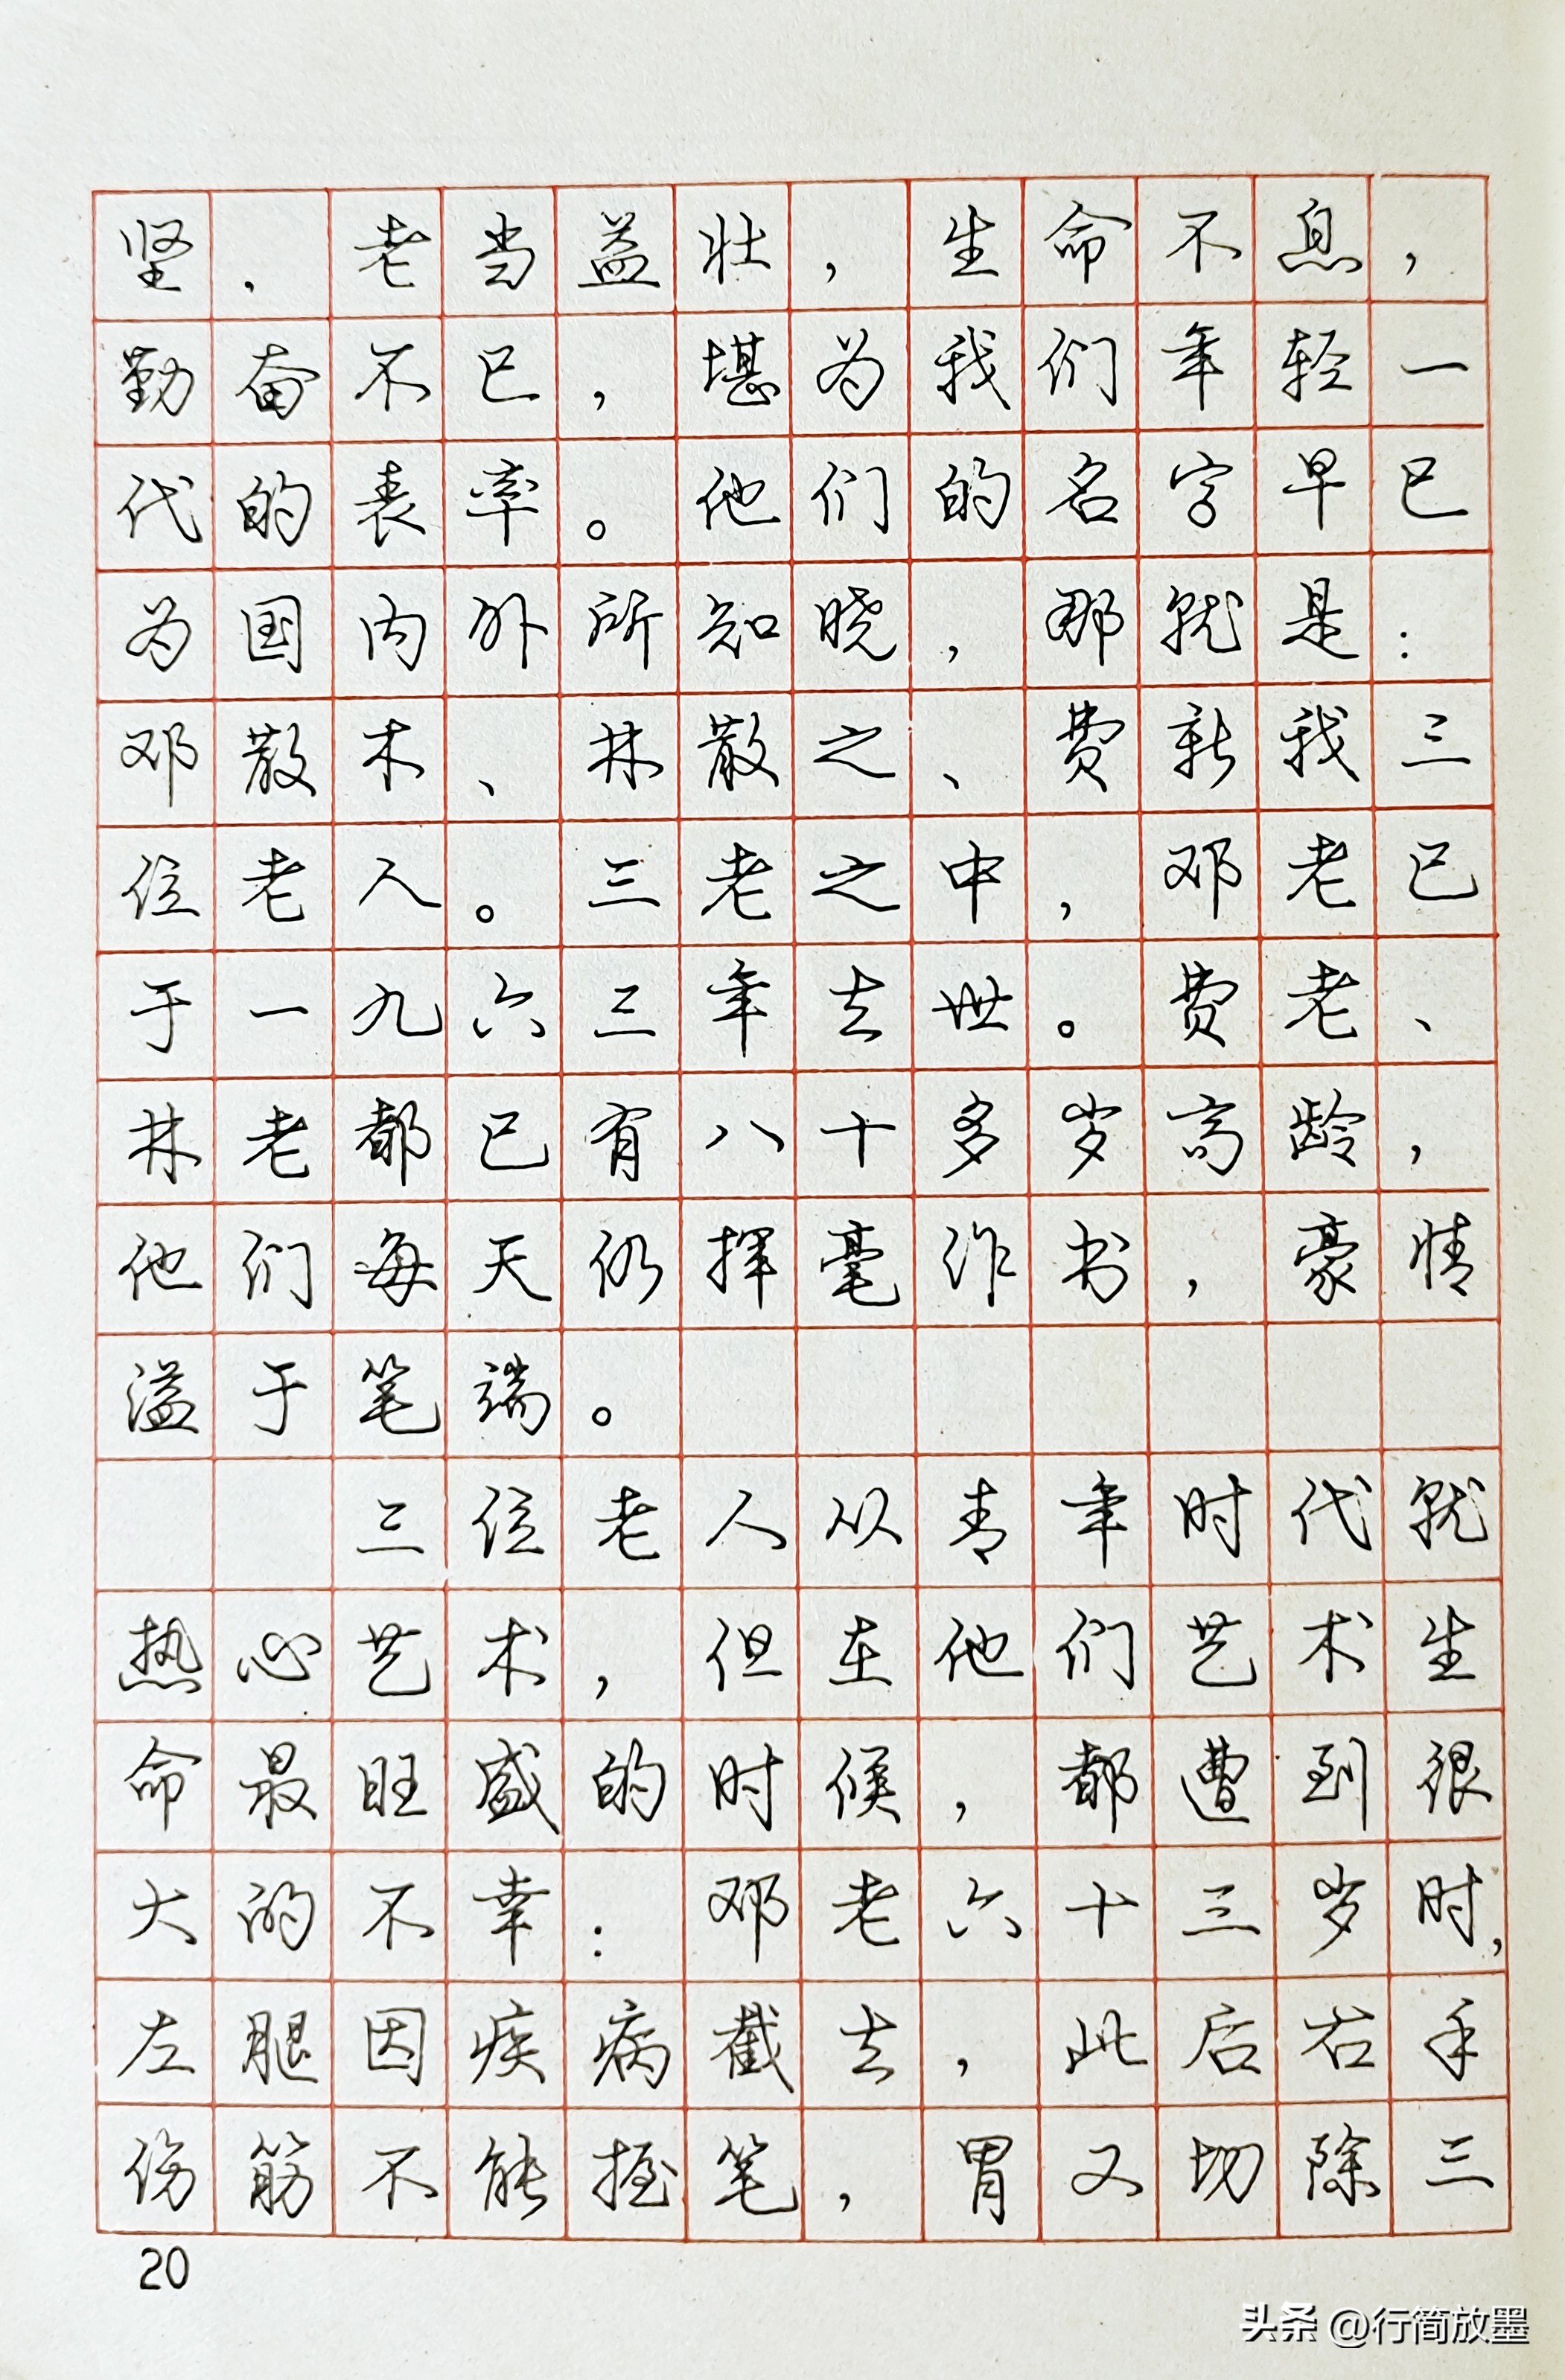 坚，老当益壮，生命不息，
勤奋不已，堪为我们年轻一
代的表率。他们的名字早已
为国内外所知晓，那就是：
邓散木、林散之、费新我三
位老人。三老之中，邓老已
于一九六三年去世。费老、
林老都已有八十多岁高龄，
他们每天仍挥毫作书，豪情
溢于笔端。
三位老人从青年时代就
热心艺术，但在他们艺术生
命最旺盛的时候，都遭到很
大的不幸：邓老六十三岁时，
左腿因疾病截去，此后右手
伤筋不能握笔，胃又切除三
20
头条 @行简放墨